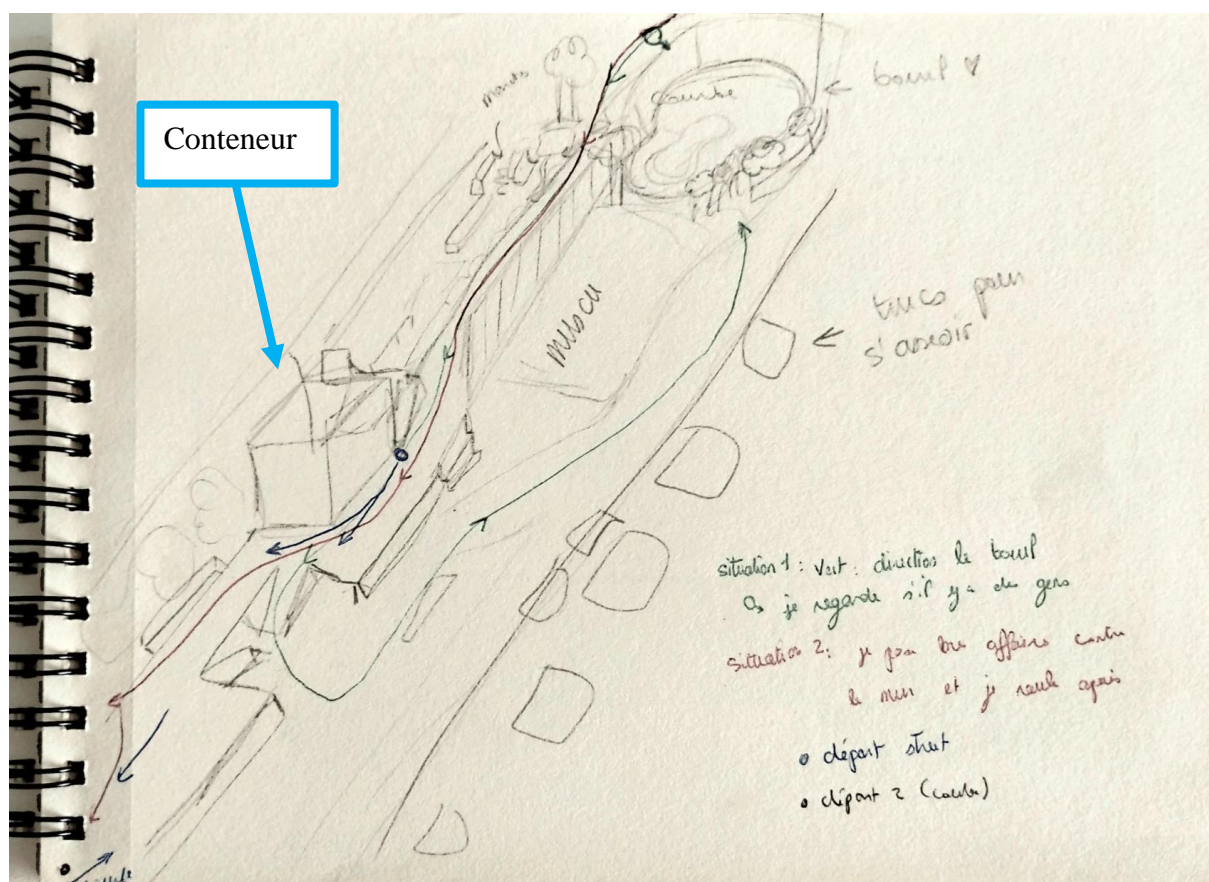 Conteneur
bowl ♥
courbe
muscu
trucs pour
s'asseoir
situation 1 : vert : direction le bowl
je regarde s'il y a des gens
situation 2 : je pose mes affaires contre
le mur et je roule après
départ street
départ 2 (courbe)
courbe